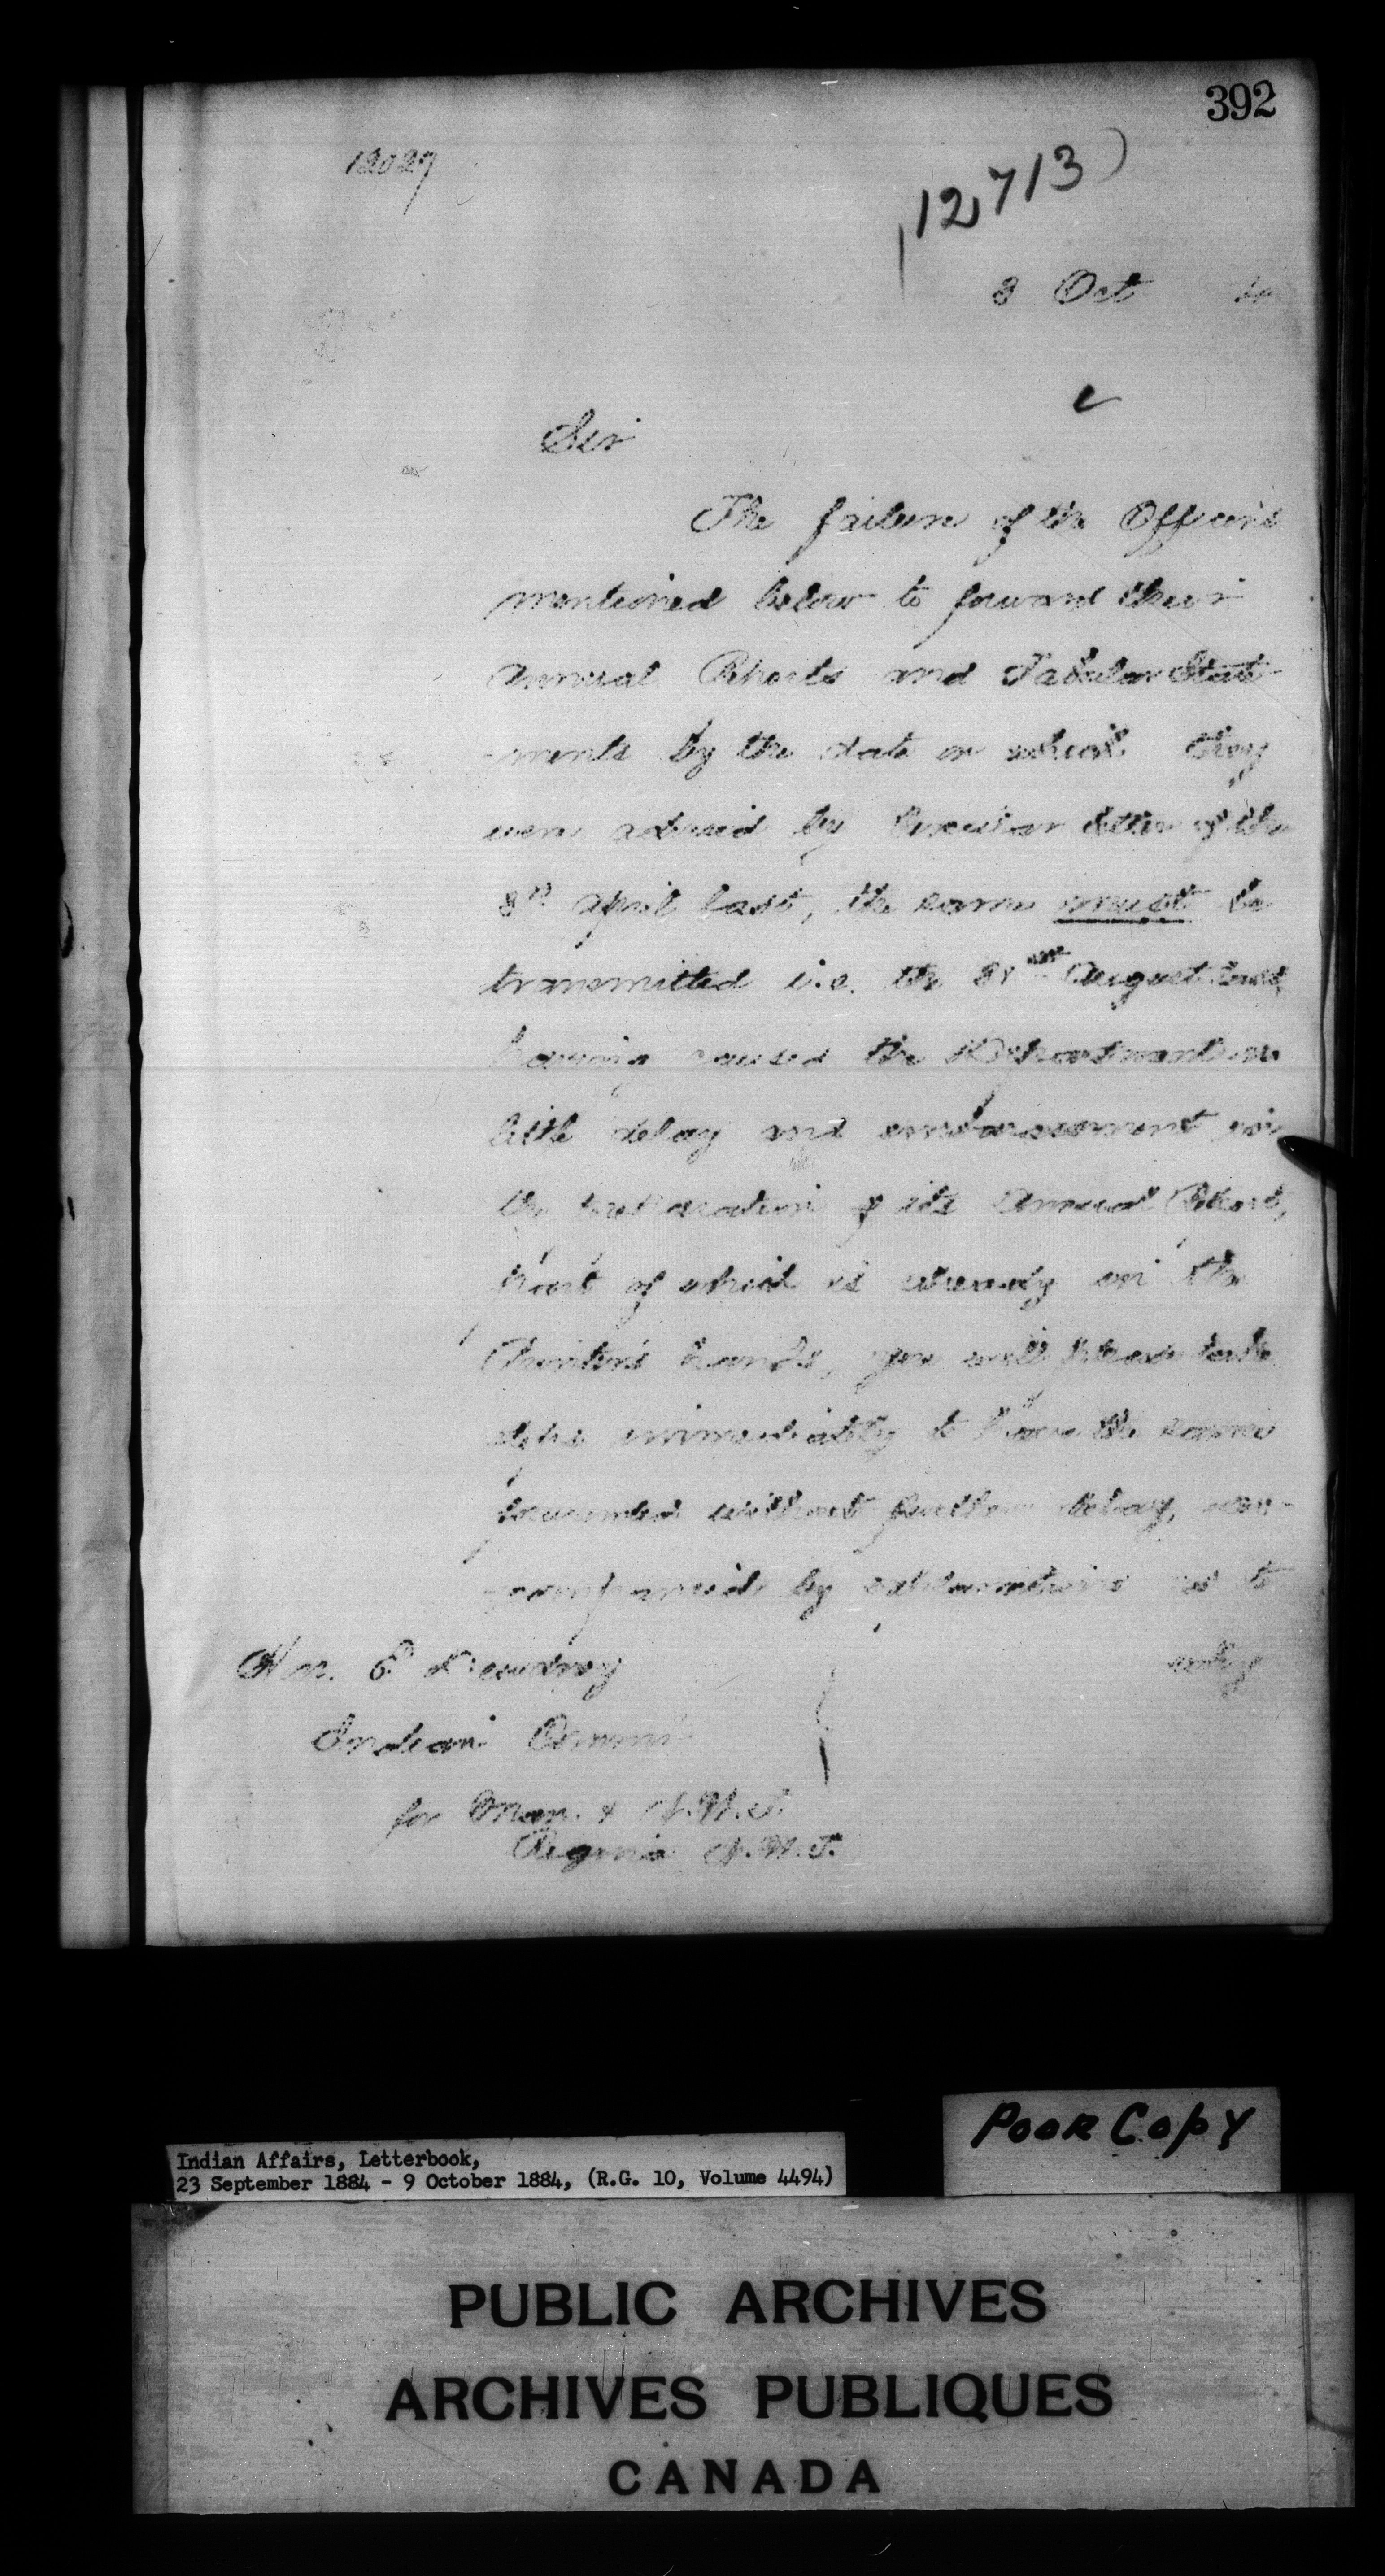 392
12027
12,713)
8 Oct 84
Sir
The failure of the Officers
mentioned below to forward their
Annual Reports and Tabular State-
-ments by the date on which they
were advised by Circular letter of the
8th April last, the same must be
transmitted i.e. the 31st August last,
having caused the Department no
little delay and embarrassment in
the preparation of its Annual Report,
part of which is already in the
Printer's hands, you will please take
steps immediately to have the same
forwarded without further delay, ac-
-companied by explanations as to
why
Hon. E Dewdney
Indian Commr
for Man. & N.W.T.
Regina N.W.T.
Poor Copy
Indian Affairs, Letterbook,
23 September 1884 - 9 October 1884, (R.G. 10, Volume 4494)
PUBLIC ARCHIVES
ARCHIVES PUBLIQUES
CANADA